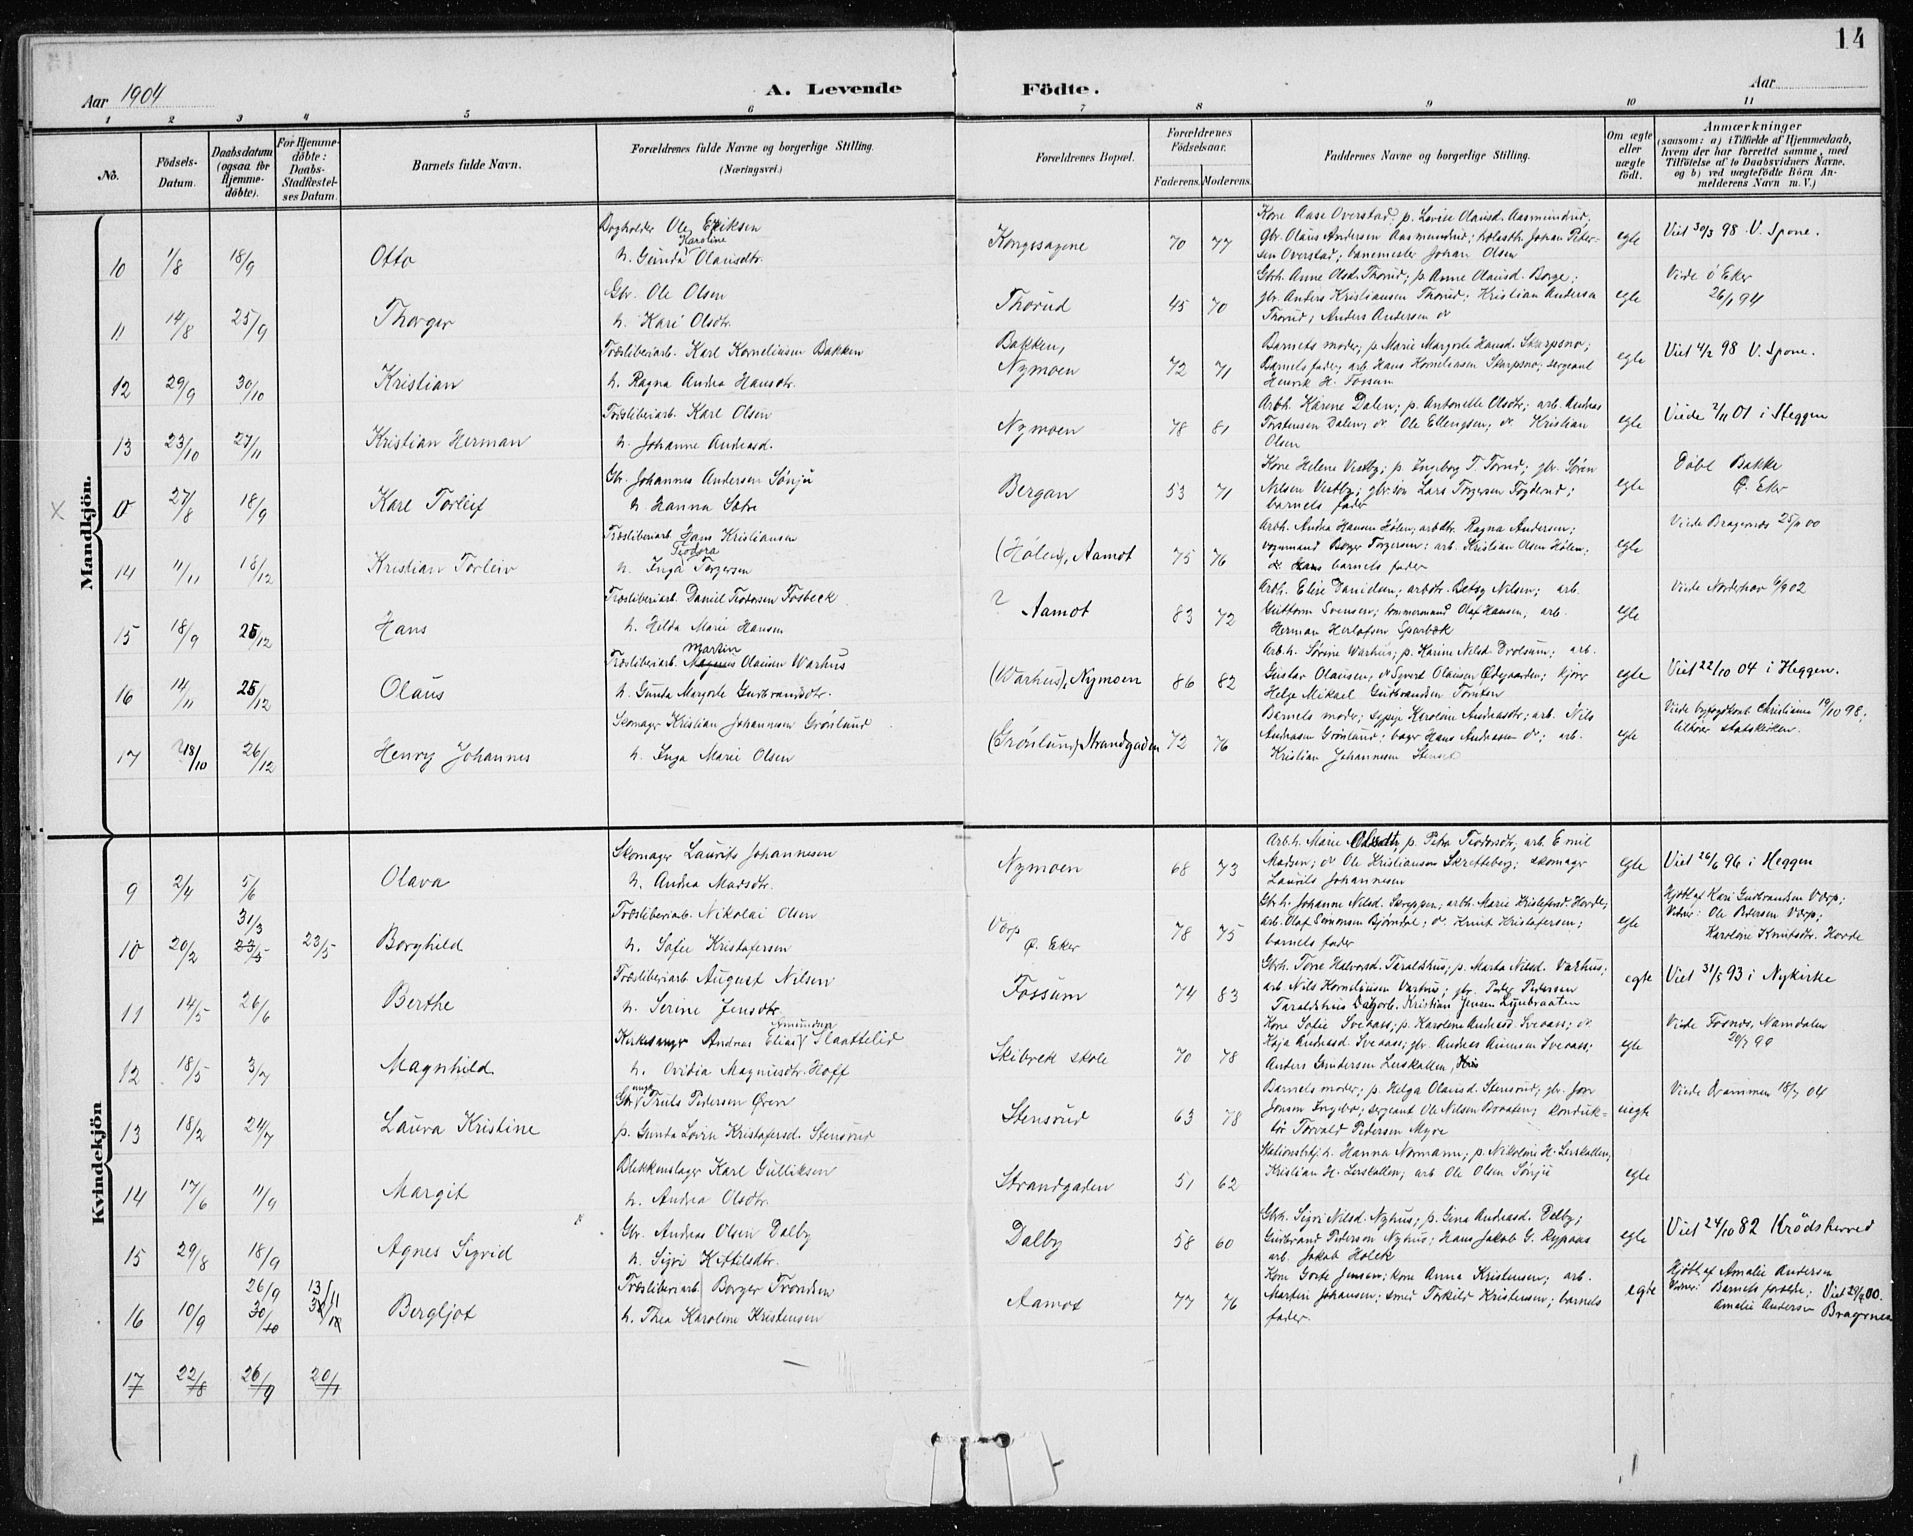 14
Aar 1904
A. Levende
Födte.
Aar
1 2 3 4 5 6 7 8 9 10 11
No.
Födsels-
Datum.
Daabsdatum
(ogsaa for
Hjemme-
döbte).
For Hjemme-
döbte:
Daabs-
Stadfæstel-
ses Datum.
Barnets fulde Navn.
Forældrenes fulde Navne og borgerlige Stilling.
(Næringsvei.)
Forældrenes Bopæl.
Forældrenes
Födselsaar.
Faderens. Moderens.
Faddernes Navne og borgerlige Stilling.
Om ægte
eller
uægte
födt.
Anmærkninger
(saasom: a) i Tilfælde af Hjemmedaab,
hvem der har forrettet samme, med
Tilföielse af to Daabsvidners Navne.
og b) ved uægtefödte Börn An-
melderens Navn m. V.)
Mandkjön.
10 1/8 18/9 Otto
Bogholder Ole Eriksen
Karoline
h. Gunda Olausdtr.
Kongssagene 70 77
Kone Aase Overstad; p. Lovise Olausd. Aasmundrud;
gbr. Olaus Andersen Aasmundrud; Johan Peter-
sen Overstad; banemester Johan Olsen
egte
Viet 30/3 98 V. Spone.
11 14/8 25/9 Thorger
Gbr. Ole Olsen
h. Kari Olsdtr.
Thorud 45 70
Gbrh. Anne Olsd. Thorud; p. Anne Olausd. Borge;
gbr. Anders Kristiansen Thorud; Kristian Andersen
Thorud; Anders Andersen do
egte
Viede Ö Eker
26/1 94
12 29/9 30/10 Kristian
Træsliberiarb. Karl Korneliusen Bakken
h. Ragna Andrea Hansdtr.
Bakken,
Nymoen 72 71
Barnets moder; p. Marie Margrete Hansd. Skarpsno;
Barnets fader; arb. Hans Korneliusen Skarpsno; sergeant
Henrik H. Fossum
egte
Viet 4/2 98 V. Spone.
13 23/10 27/11 Kristian Herman
Træsliberiarb. Karl Olsen
h. Johanne Andreasd.
Nymoen 78 81
Arbh. Karene Dalen; p. Antonette Olsdtr; arb. Andreas
Torstensen Dalen; do Ole Ellingsen; do Kristian
Olsen
egte
Viede 2/11 01 i Heggen
X 0 27/8 18/9 Karl Torleif
Gbr. Johannes Andersen Sönju
h. Hanna Sætre
Bergan 53 71
Kone Helene Vestby; p. Ingeborg T. Torud; gbr. Sören
Nilsen Vestby; gbr.sön Lars Torgersen Fogderud;
barnets fader
egte
Döbt Bakke
Ö. Eker
14 11/11 18/12 Kristian Torleiv
Træsliberiarb. Hans Kristiansen
Teodora
h. Inga Torgersen
(Hölen), Aamot 75 76
Arbh. Andrea Hansen Hölen; arbdtr. Ragna Andersen;
vognmand Borger Torgersen; arb. Kristian Olsen Hölen;
do Hans barnets fader
egte
Viede Bragernes 25/11 00
15 18/9 26/12 Hans
Træsliberiarb. Daniel Teodorsen Fosbeck
h. Helda Marie Hansen
? Aamot 83 72
Arbh. Elise Danielsen; arbdtr. Betsy Nilsen; arb.
Guttorm Svensen; tømmermand Olaf Hansen; arb.
Herman Herlofsen Sparbæk
egte
Viede Norderhov 6/9 02
16 14/11 25/12 Olaus
Martin
Træsliberiarb. Magnus Olausen Warhus
h. Gunda Margrete Gudbrandsdtr.
(Warhus), Nymoen 86 82
Arb.h. Sörine Warhus; p. Karine Nilsd. Drolsum; arb.
Gustav Olausen; do Syvert Olausen Ödegaarden; kjører
Helge Mikael Gudbrandsen
egte
Viet 22/10 04 i Heggen.
17 18/10 26/12 Henry Johannes
Skomager Kristian Johannesen Grönlund
h. Inga Marie Olsen
(Grönlund) Strandgaden 72 76
Barnets moder; sypige Karoline Andreasdtr; arb. Nils
Andreasen Grönland; bager Hans Andreasen do; arb.
Kristian Johannesen
egte
Viede Christiania 19/10 98.
tilhører statskirken.
Kvindekjön
9 2/4 5/6 Olava
Skomager Laurits Johannesen
h. Andrea Madsdtr.
Nymoen 68 73
Arb.h. Marie Olsdtr, p. Petra Teodorsdtr, arb. Emil
Madsen; do Ole Kristiansen Skretteberg; skomager
Laurits Johannesen
egte
Viet 26/6 96 i Heggen
10 20/2 31/3 23/5 23/5 Borghild
Træsliberiarb. Nikolai Olsen
h. Sofie Kristofersen
Vörp
Ö. Eker 78 75
Gbr.h. Johanne Nilsd. Skreppen; arbh. Marie Kristofersd. Horde;
arb. Olaf Simonsen Björndal; do Knut Kristofersen;
barnets fader
egte
Hjdöbt af Kari Gudbrandsen Vörp;
Vidner: Ole Pedersen Vörp;
Karoline Knutsdtr. Horde
11 14/5 26/6 Berthe
Træsliberiarb August Nilsen
h. Serine Jensdtr.
Fossum 74 83
Gbrh. Torre Halvorsd. Taraldshus; p. Marta Nilsd. Varhus;
arb Nils Korneliusen Varhus; gbr. Peder Pedersen
Taraldshus Dagarb. Kristian Jensen Lynbraaten
egte
Viet 31/5 93 i Nykirke
12 18/5 3/7 Magnhild
Amundsen
Kirkesanger Andreas Elias Slaattelid
h. Ovidia Magnusdtr. Hoff
Skibrek skole 70 78
Kone Sofie Sveaas; p. Karoline Andreasd. Sveaas; do
Kaja Andreasd. Sveaas; gbr. Andreas Sveaas;
Anders Gundersen Lerskallen
egte
Viede Fosnes, Namdalen
20/7 90
13 18/2 24/7 Laura Kristine
ungk.
Gbr Truls Pedersen Ören
p. Gunda Lovise Kristofersd. Stensrud
Stensrud 63 78
Barnets moder; p. Helga Olausd. Stensrud; gbr. Jon
Jonsen Ingebo; sergeant Ole Nilsen Braaten; konduk-
tör Torvald Pedersen Myre
uegte
Viede Drammen 18/7 04
14 17/6 11/9 Margit
Blikkenslager Karl Gulliksen
h. Andrea Olsdtr.
Strandgaden 51 62
Stationsbetj.h. Hanna Normann; p. Nikoline H. Lerskallen;
Kristian H. Lerskallen; arb Ole Olsen Sönju
egte
15 29/8 18/9 Agnes Sigrid
Gbr. Andreas Olsen Dalby
h. Sigri Kittelsdtr.
Dalby 58 60
Gbrh. Sigri Nilsd. Nyhus; p. Gina Andreasd. Dalby;
Gudbrand Pederson Nyhus; Hans Jakob G. Rypaas
arb. Jakob Holek
egte
Viet 24/10 82 Krödsherred
16 10/9 26/9 30/10 13/11 Bergljot
Træsliberiarb Borger Trondsen
h. Thea Karoline Kristensen
Aamot 77 76
Kone Gorte Jensen; kone Anna Kristensen; arb.
Martin Johansen; smed Torkild Kristensen; barnets
fader.
egte
Hjdöbt af Amalie Andersen
Vidner: Barnets forældre; Viet 29/9 00.
Amalie Andersen Bragernes
17 22/8 26/9 20/1